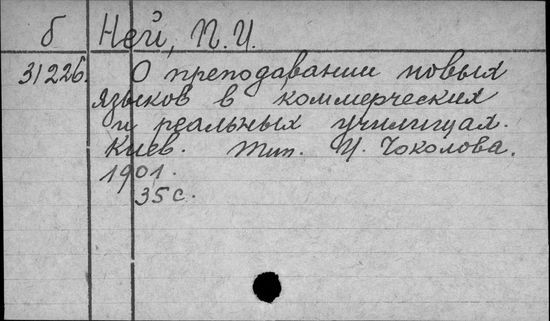 б Ней, П. И.
31226. О преподавании новых
языков в коммерческих
и реальных училищах.
Киев. Тип. И. Чоколова.
1901.
35 с.